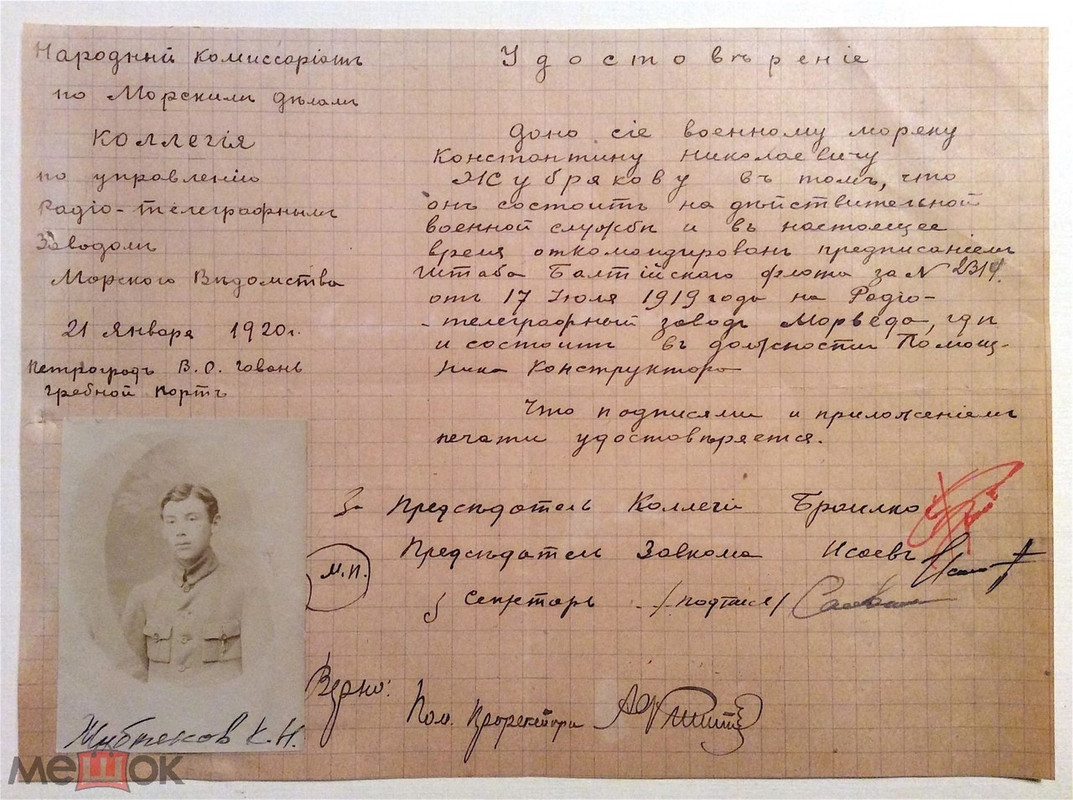 Народный комиссаріатъ
по Морскимъ дѣламъ
Коллегія
по управленію
Радіо-телеграфнымъ
Заводомъ
Морского Вѣдомства
21 Января 1920г.
Петроградъ В.О. Гавань
Гребной портъ
Удостовѣреніе
Дано сіе военному моряку
Константину Николаевичу
Жубрякову въ томъ, что
онъ состоитъ на дѣйствительной
военной службѣ и въ настоящее
время откомандированъ предписаніемъ
Штаба Балтійскаго флота за N 2314.
отъ 17 Іюля 1919 года на Радіо-
-телеграфный заводъ Морведа, гдѣ
и состоитъ въ должности Помощ-
ника Конструктора
Что подписями и приложеніемъ
печати удостовѣряется.
За Предсѣдатель Коллегіи Браилко
Предсѣдатель Завкома Исаевъ
М.П.
Секретарь /подпись/
Вѣрно:
Пом.
К.Н.
мешок